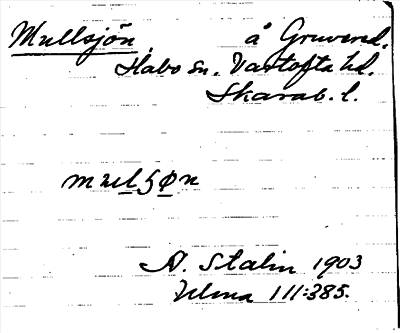 Mullsjön, å Gruvered,
Habo sn. Vartofta hd.
Skarab. l.
mulʃøn
A. Stalin 1903
Ulma 111:385.